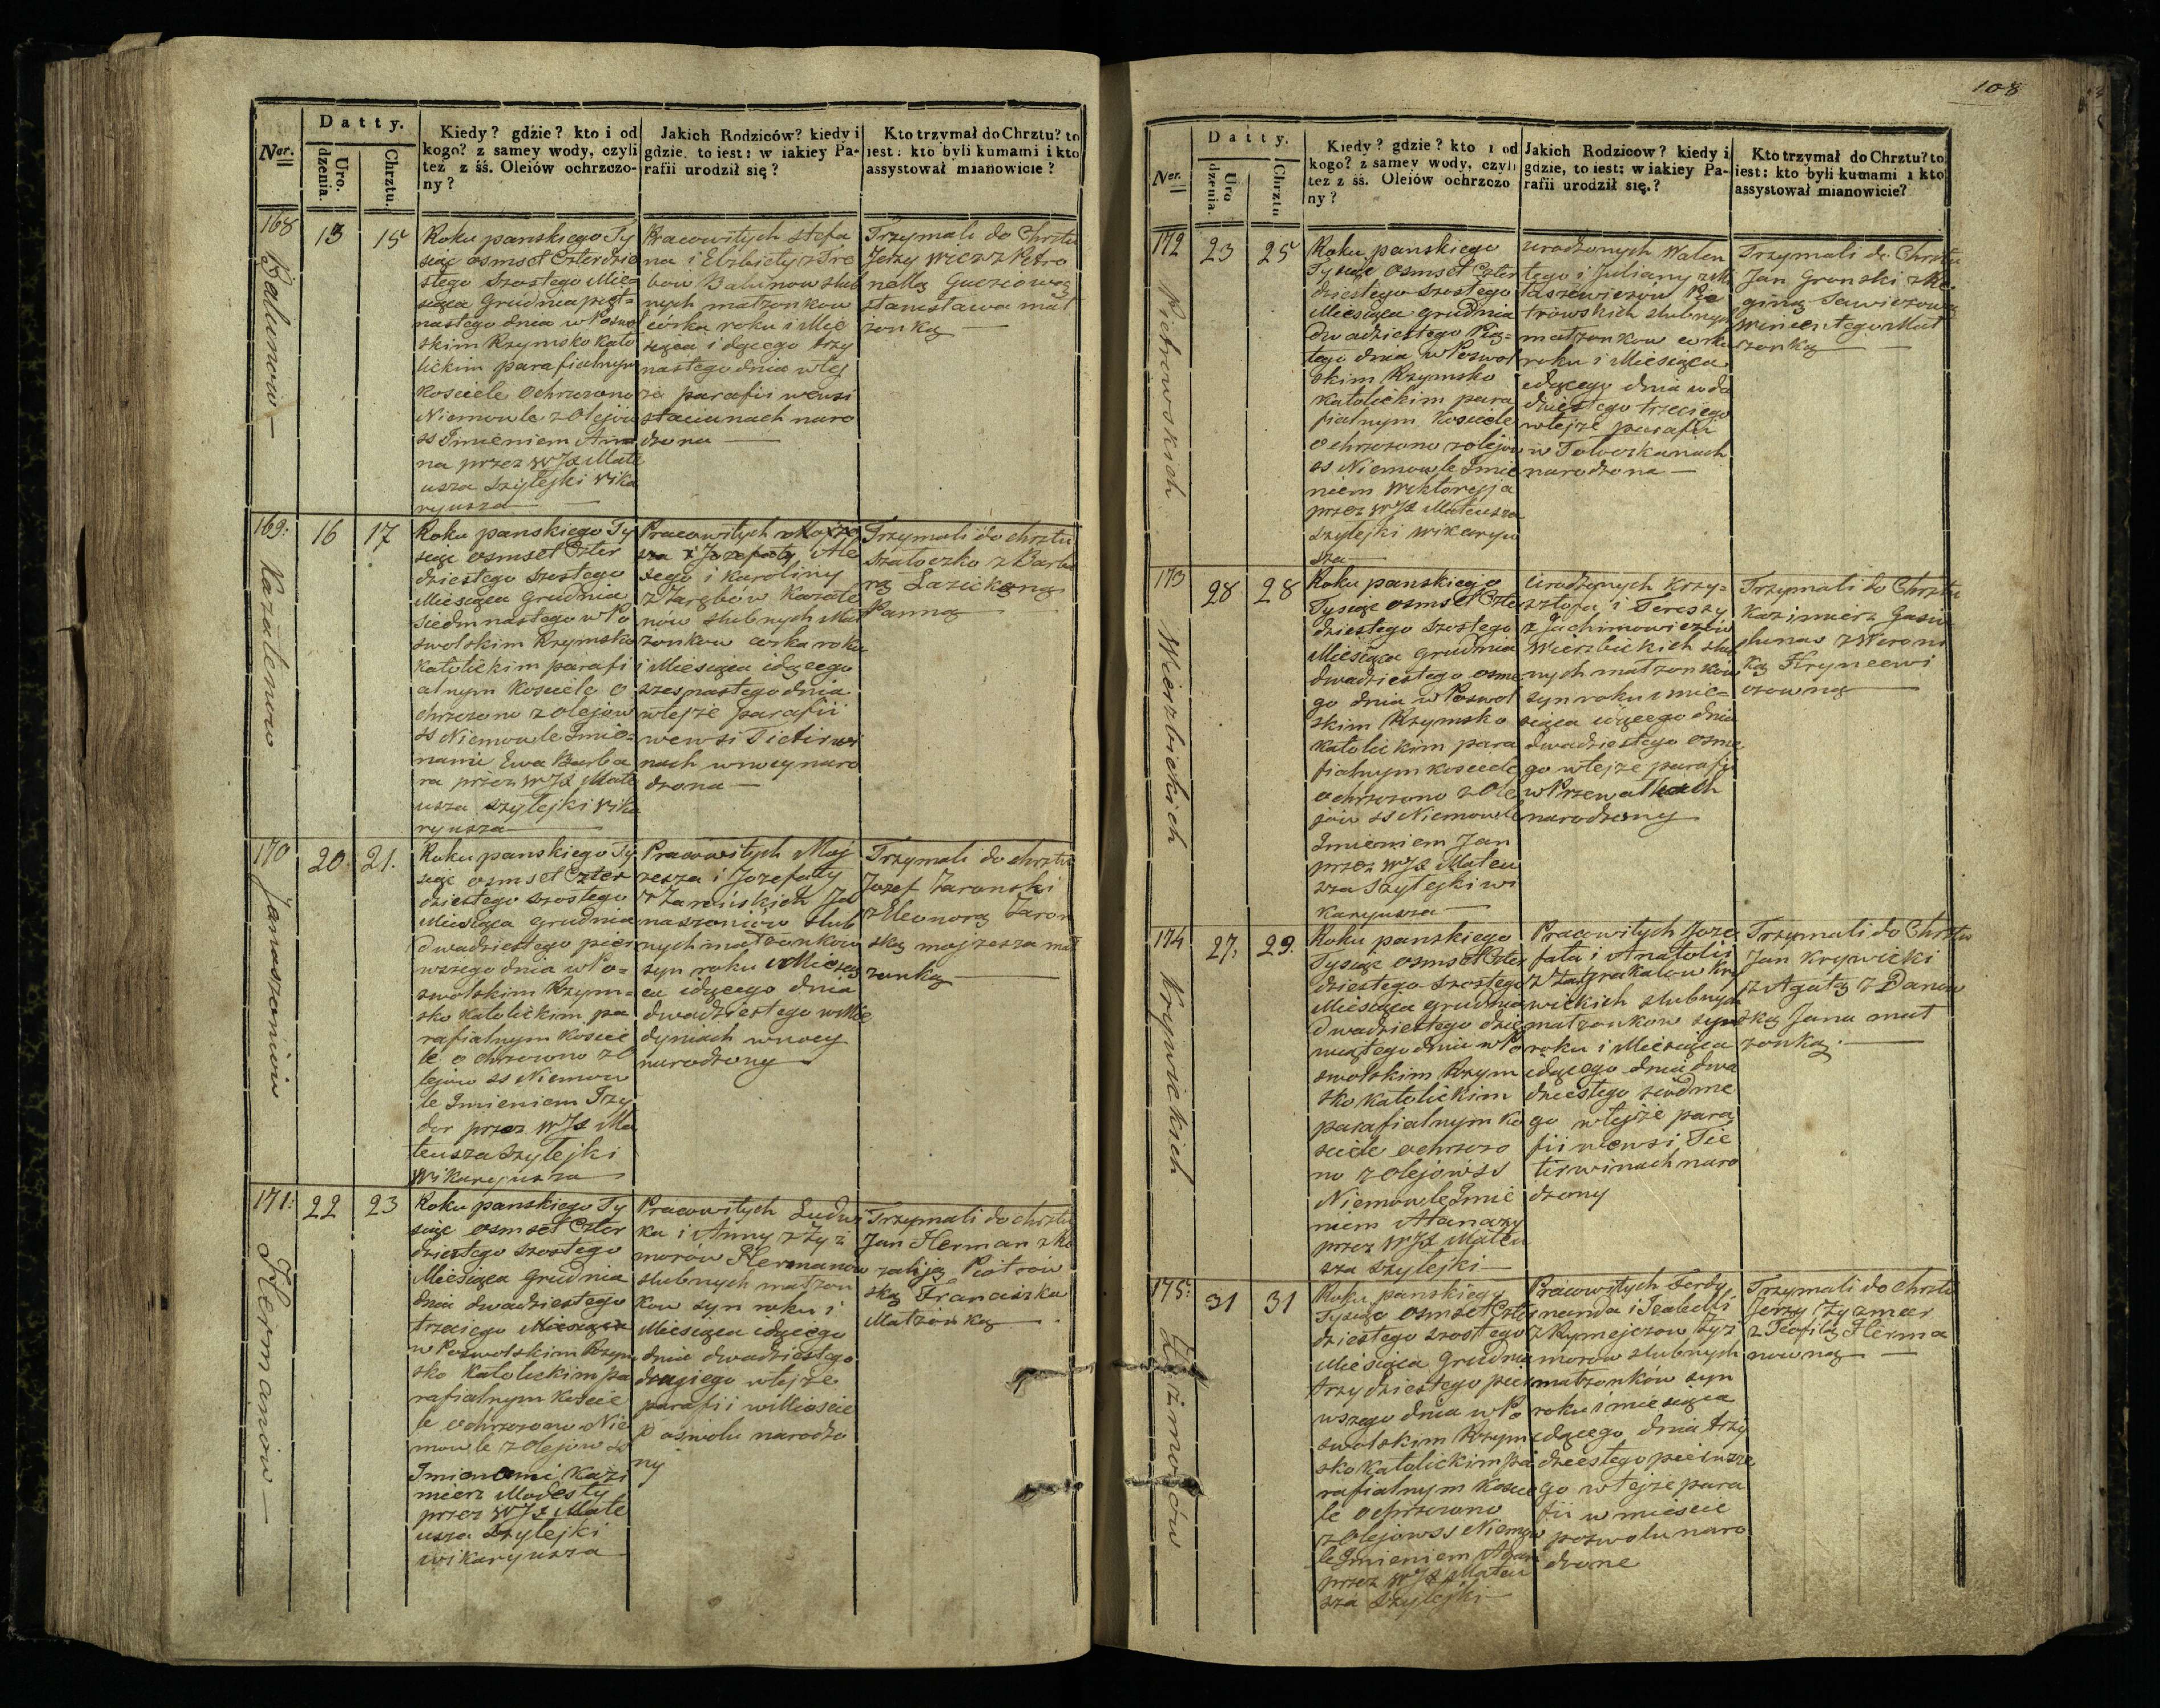 108
Datty.
Ner.
Uro.
dzenia.
Chrztu.
Kiedy? gdzie? kto i od
kogo? z samey wody, czyli
też z śś. Oleiów ochrzczo-
ny?
Jakich Rodziców? kiedy i
gdzie, to iest: w iakiey Pa-
rafii urodził się?
Kto trzymał do Chrztu? to
iest: kto byli kumami i kto
assystował mianowicie?
168
Balunow
13
15
Roku panskiego Ty
siąc osmset czterdzie
stego szostego Mie=
siąca Grudnia pięt=
nastego dnia w Poswol
skim Rzymsko kato
lickim parafialnym
Kosciele ochrzczono
Niemowle z Olejów
ss Imieniem An
na przez WJX Mate
usza Szylejki Wika
ryusza
Pracowitych Stefa
na i Elzbiety z
bow Balunow slub
nych małzonkow
córka roku i Mie
siąca idącego trzy
nastego dnia w tej
ze parafii we wsi
naro
dzona
Trzymali do Chrztu
Jerzy z Petro
nellą
Stanisława mał
zonką
169:
Kazalenow
16
17
Roku panskiego Ty
siąc osmset Czter
dziestego szostego
Miesiąca Grudnia
siedmnastego w Po
swolskim Rzymsko
Katolickim parafi
alnym Kosciele o
chrzczono z Olejow
ss Niemowle Imio=
nami Ewa Barba
ra przez WJX Mate
usza Szylejki Wika
ryusza
Pracowitych
sza i Jozefaty Ale
xego i Karoliny
z Zarębów Kazale
now slubnych Mał
zonkow córka roku
i Miesiąca idącego
szesnastego dnia
w tejze parafii
we wsi Tietirwi
nach w nocy naro
dzona
Trzymali do chrztu
Szatoczko z Barba
rą Lazickaną
Panną
170
Janaszeniow
20
21.
Roku panskiego Ty
siąc osmset Czter
dziestego szostego
Miesiąca Grudnia
dwadziestego pier
wszego dnia w Po=
swolskim Rzym=
sko Katolickim pa
rafialnym Koscie
le ochrzczono z O
lejow ss Niemow
le Imieniem Izy
dor przez WJX Ma
teusza Szylejki
Wikaryusza
Pracowitych Moj
zesza i Jozefaty
z Zarońskich Ja
naszeniów slub
nych małzonkow
syn roku i Miesią
ca idącego dnia
dwadziestego w Mie
dyniach w nocy
narodzony
Trzymali do chrztu
Jozef Zaronski
z Eleonorą Zaron
ską Mojzesza mał
zonką
171:
Hermanow
22
23
Roku panskiego Ty
siąc osmset Czter
dziestego szostego
Miesiąca Grudnia
dnia dwadziestego
trzeciego Miesiąca
w Poswolskim Rzym
sko Katolickim pa
rafialnym Koscie
le ochrzczono Nie
mowle z Olejow ss
Imionami Kazi
mierz Modesty
przez WJX Mate
usza Szylejki
wikaryusza
Pracowitych Ludwi
ka i Anny z Zyz
morów Hermanow
slubnych małzon
kow syn roku i
Miesiąca idącego
dnia dwadziestego
drugiego w tejze
parafii w Miescie
Poswolu narodzo
ny
Trzymali do chrztu
Jan Herman z Ro
zaliją Piotrow
ską Franciszka
Małzonką
Datty.
Ner.
Uro
dzenia.
Chrztu
Kiedy? gdzie? kto i od
kogo? z samey wody, czyli
też z śś. Oleiów ochrzczo
ny?
Jakich Rodziców? kiedy i
gdzie, to iest: w iakiey Pa-
rafii urodził się?
Kto trzymał do Chrztu? to
iest: kto byli kumami i kto
assystował mianowicie?
172
Pietrowskich
23
25
Roku panskiego
Tysiąc osmset Czter
dziestego szostego
Miesiąca grudnia
dwadziestego Pią=
tego dnia w Poswol
skim Rzymsko
Katolickim para
fialnym Kosciele
ochrzczono z olejow
ss Niemowle Imie
niem Wiktoryja
przez WJX Mateusza
Szylejki wikaryu
sza
urodzonych Walen
tego i Julianny z Mi
taszewiczów Pie
trowskich slubnych
małzonkow corka
roku i Miesiąca
idącego dnia dwa
dziestego trzeciego
w tejze parafii
w Toloczkanach
narodzona
Trzymali do Chrztu
Jan Gronski z Re
giną Sawiczową
Wincentego Mał
zonką
173
Wierzbickich
28
28
Roku panskiego
Tysiąc osmset Czter
dziestego szostego
Miesiąca grudnia
dwadziestego osme
go dnia w Poswol
skim Rzymsko
Katolickim para
fialnym kosciele
ochrzczono z Ole
jow ss Niemowle
Imieniem Jan
przez WJX Mateu
sza Szylejki wi
karyusza
Urodzonych Krzy=
sztofa i Teressy
z Jachimowiczów
Wierzbickich slub
nych małzonkow
syn roku i mie=
siąca idącego dnia
dwadziestego osme
go w tejze parafii
w Przewalkach
narodzony
Trzymali do Chrztu
Kazimierz Gasiu
lunas z Weroni
ką Hryncewi
czowną
174
Krywickich
27.
29.
Roku panskiego
Tysiąc osmset Czter
dziestego szostego
Miesiąca grudnia
dwadziestego dzie
wiątego dnia w Po
swolskim Rzym
sko katolickim
parafialnym Ko
sciele ochrzczo
no z Olejow ss
Niemowle Imie
niem Atanazy
przez WJX Mateu
sza Szylejki
Pracowitych Joze
fata i Anatolii
z Kry
wickich slubnych
matzonkow syn
roku i Miesiąca
idącego dnia dwa
dziestego siodme
go w tejze para
fii we wsi Tie
tirwinach naro
dzony
Trzymali do Chrztu
Jan Krywicki
z Agatą z Danow
ską Jana mał
zonką.
175:
Zyzmorów
31
31
Roku panskiego
Tysiąc osmset Czter
dziestego szostego
Miesiąca Grudnia
trzydziestego pier
wszego dnia w Po
swolskim Rzym
sko Katolickim pa
rafialnym Koscie
le ochrzczono
z Olejow ss Niemow
le Imieniem Adam
przez WJX Mateu
sza Szylejki
Pracowitych Ferdy
nanda i Izabelli
z Rymejczow Zyz
morow slubnych
małzonków syn
roku i miesiąca
idącego dnia trzy
dziestego pierwsze
go w tejze para
fii w miescie
poswolu naro
dzone
Trzymali do Chrztu
Jerzy Zyzmar
z Teofilą Herma
nowną